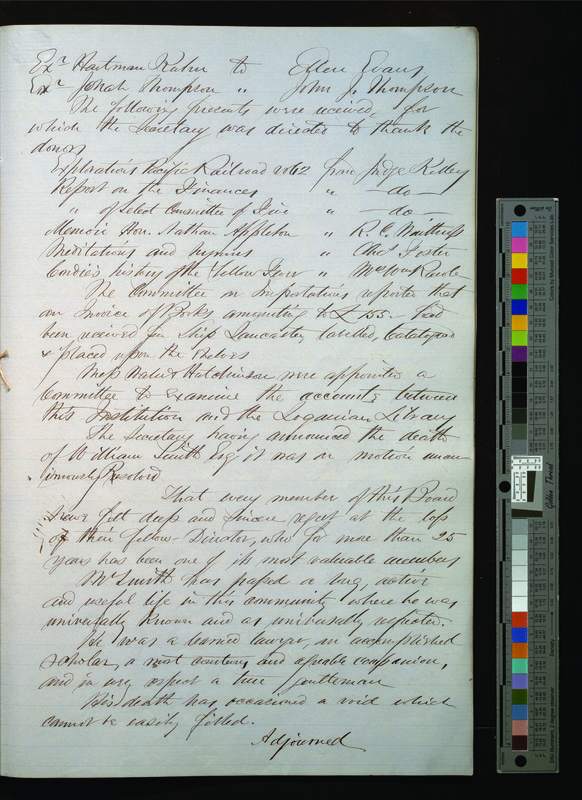 Exr Hartman Kuhn to Ellen Evans
Exr Jonah Thompson " John J. Thompson
The following presents were received, for
which the Secretary was directed to thank the
donors
Explorations Pacific Railroad vol 12 from Judge Kelley
Report on the Finances " -do-
" of Select Committee of Five " -do-
Memoir Hon. Nathan Appleton " R. C. Winthrop
Meditations and hymns " Chs Foster
Condie's history of the Yellow Fever "
The Committee on Importations reported that
an Invoice of Books amounting to £155. had
been received pr Ship Lancaster, labelled, Catalogued
& placed upon the shelves
Messrs Hutchinson were appointed a
Committee to examine the accounts between
this Institution and the Loganian Library
The Secretary having announced the death
of William Smith Esq it was on motion unan
imously Resolved
That every member of this Board
have felt deep and sincere regret at the loss
of their fellow-Director, who for more than 25
years has been one of its most valuable members
Mr Smith has passed a long, active
and useful life in this community where he was
universally known and as universally respected.
He was a learned lawyer, an accomplished
scholar, a most courteous and agreeable companion,
and in every respect a true gentleman
His death has occasioned a void which
cannot be easily filled.
Adjourned
Golden Thread